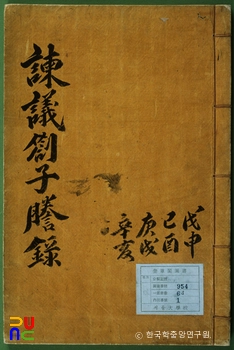 諫議劄子謄錄
戊申
己酉
庚戌
辛亥
954
1
ⓒ 한국학중앙연구원